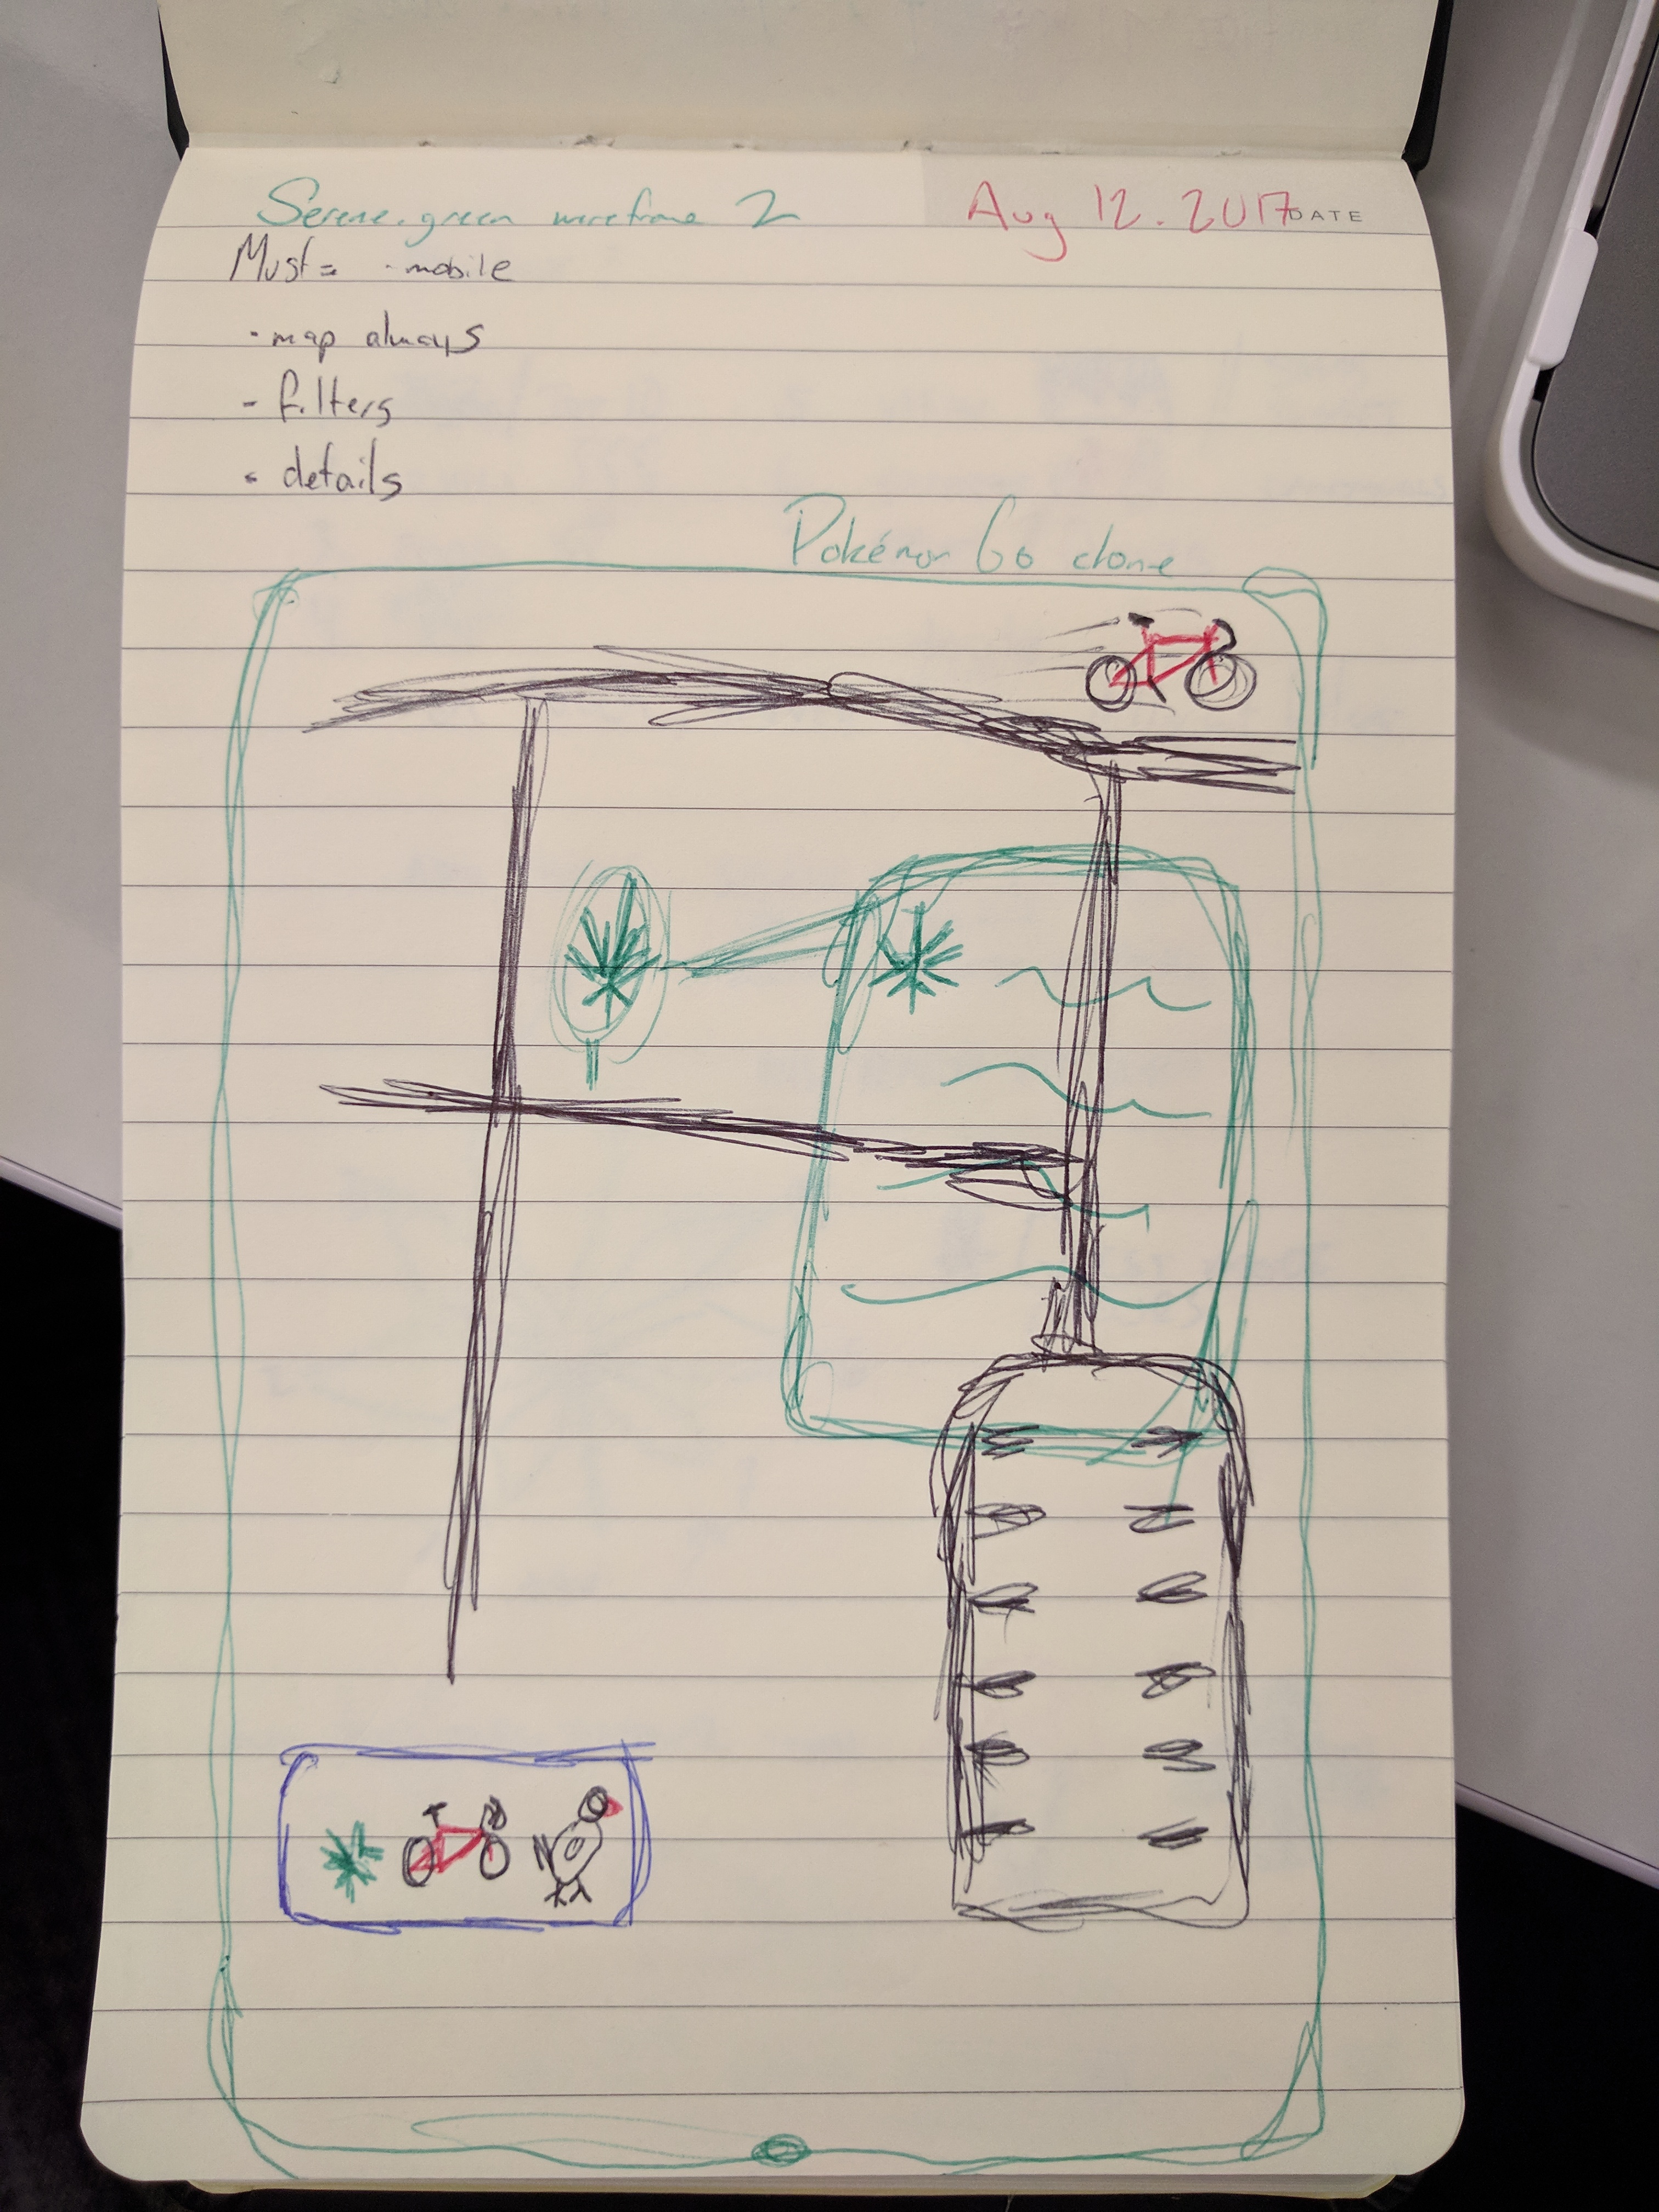 Serene.green wireframe 2
Aug 12. 2017 DATE
Must = - mobile
- map always
- filters
- details
Pokémon Go clone